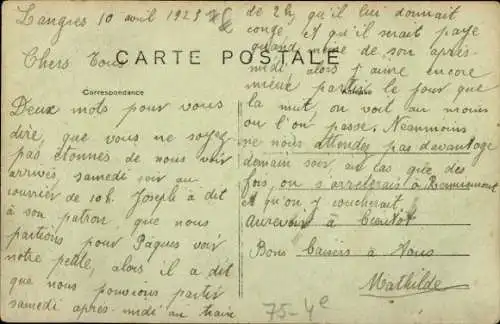 Langres 10 avril 1925
Chers Tous
CARTE POSTALE
Correspondance
Deux mots pour vous
dire, que vous ne soyez
pas étonnés de nous voir
arrivés samedi soir au
courrier de 10h. Joseph a dit
à son patron que nous
partions pour Pâques voir
notre petite, alors il a dit
que nous pouvions partir
samedi après-midi au train
de 2h, qu'il lui donnait
congé, et qu'il serait payé
quand même de son après-
midi alors j'aime encore
mieux partir le jour que
la nuit, on voit au moins
ou l'on passe. Néanmoins
ne nous attendez pas davantage
demain soir au cas que des
fois, on s'arrêterais à Remiremont
et qu'on y coucherait.
Aurevoir à Bientôt
Bons Baisers à Vous
Mathilde
75-4e